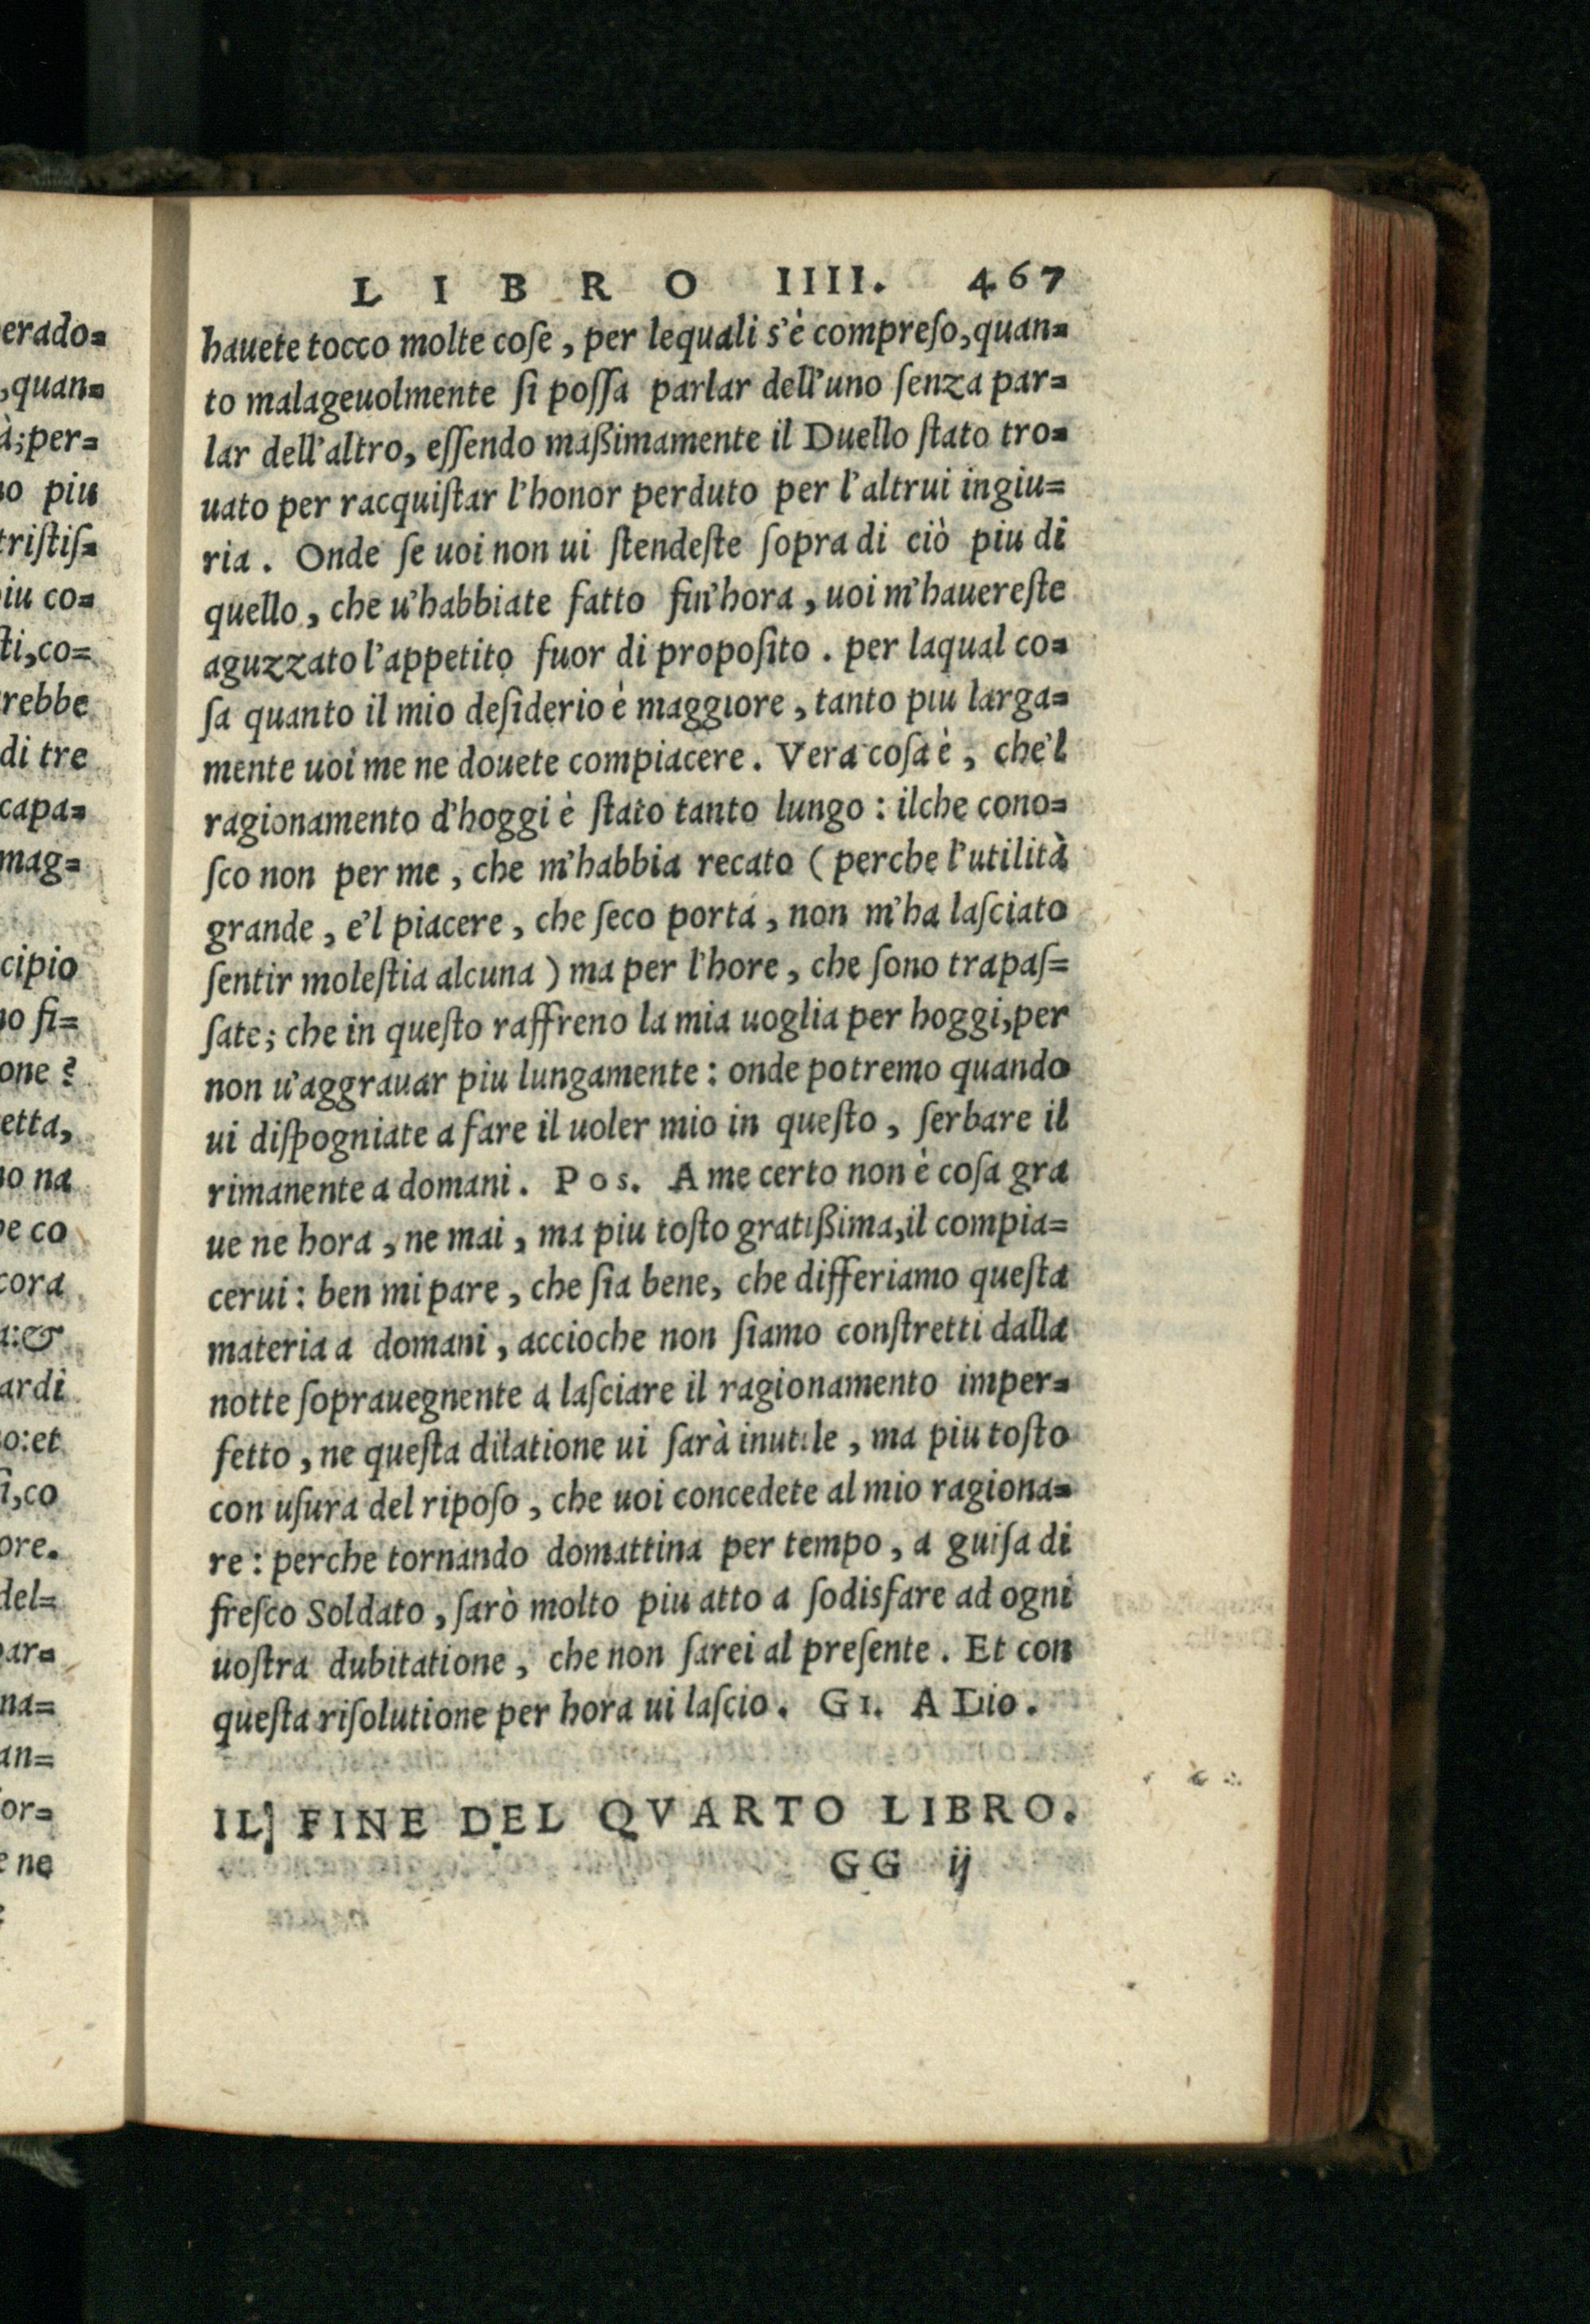 LIBRO IIII. 467
hauete tocco molte coſe, per lequali s'è compreſo, quan=
to malageuolmente ſi poſſa parlar dell'uno ſenza par=
lar dell'altro, eſſendo maßimamente il Duello ſtato tro=
uato per racquiſtar l'honor perduto per l'altrui ingiu=
ria. Onde ſe uoi non ui ſtendeſte ſopra di ciò piu di
quello, che u'habbiate fatto fin'hora, uoi m'hauereſte
aguzzato l'appetito fuor di propoſito. per laqual co=
ſa quanto il mio deſiderio è maggiore, tanto piu larga=
mente uoi me ne douete compiacere. Vera coſa è, che'l
ragionamento d'hoggi è ſtato tanto lungo: ilche cono=
ſco non per me, che m'habbia recato (perche l'utilità
grande, e'l piacere, che ſeco porta, non m'ha laſciato
ſentir moleſtia alcuna) ma per l'hore, che ſono trapaſ=
ſate; che in queſto raffreno la mia uoglia per hoggi, per
non u'aggrauar piu lungamente: onde potremo quando
ui diſpogniate a fare il uoler mio in queſto, ſerbare il
rimanente a domani. Pos. A me certo non è coſa gra
ue ne hora, ne mai, ma piu toſto gratißima, il compia=
cerui: ben mi pare, che ſia bene, che differiamo queſta
materia a domani, accioche non ſiamo conſtretti dalla
notte ſoprauegnente a laſciare il ragionamento imper=
fetto, ne queſta dilatione ui ſarà inutile, ma piu toſto
con uſura del ripoſo, che uoi concedete al mio ragiona=
re: perche tornando domattina per tempo, a guiſa di
freſco Soldato, ſarò molto piu atto a ſodisfare ad ogni
uoſtra dubitatione, che non ſarei al preſente. Et con
queſta riſolutione per hora ui laſcio. GI. A Dio.
IL FINE DEL QVARTO LIBRO.
GG ij